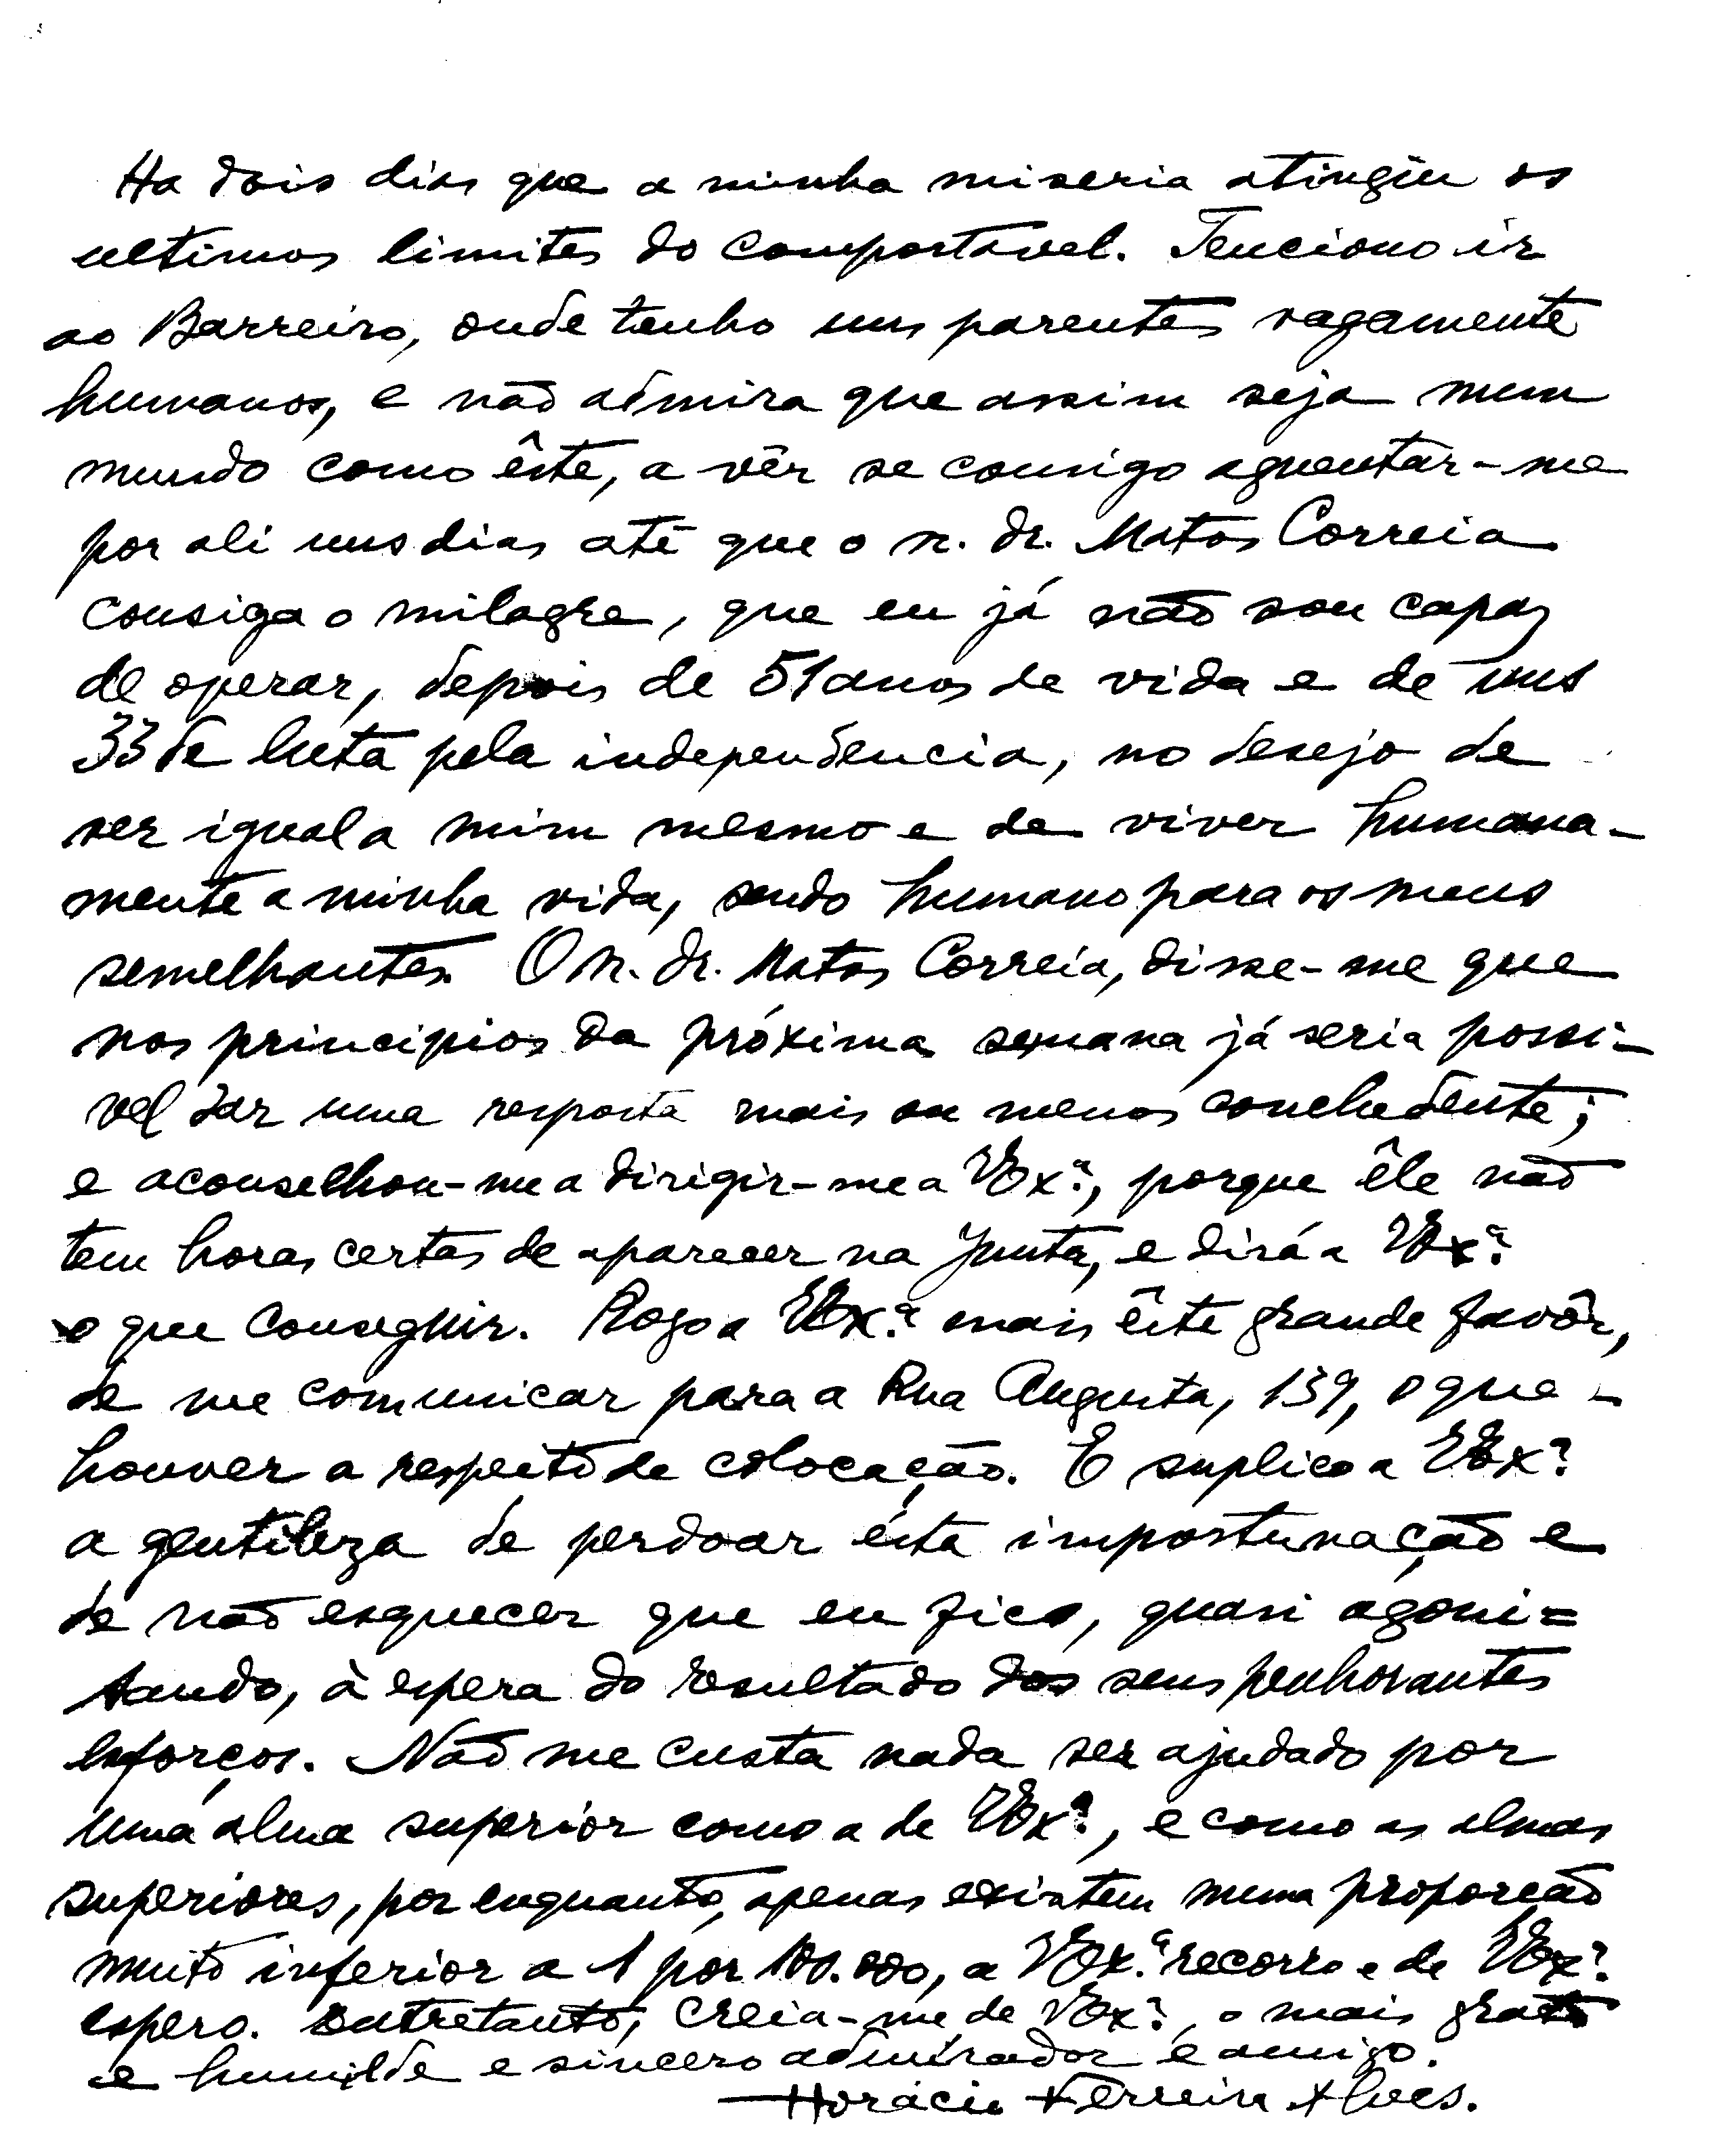 Ha dois dias que a minha miseria atingiu os
ultimos limites do comportavel. Tenciono ir
ao Barreiro, onde tenho uns parentes vagamente
humanos, e não admira que assim seja num
mundo como êste, a vêr se consigo aguentar-me
por ali uns dias até que o sr. dr. Matos Correia
consiga o milagre, que eu já não sou capaz
de operar, depois de 51 anos de vida e de uns
33 de luta pela independencia, no desejo de
ser igual a mim mesmo e de viver humana-
mente a minha vida, sendo humano para os meus
semelhantes. O sr. dr. Matos Correia, disse-me que
nos principios da próxima semana já seria possi-
vel dar uma resposta mais ou menos concludente;
e aconselhou-me a dirigir-me a V.Ex.ª, porque êle não
tem horas certas de aparecer na Junta, e dirá a V.Ex.ª
o que conseguir. Rogo a V.Ex.ª mais êste grande favôr,
de me comunicar para a Rua Augusta, 139, o que
houver a respeito de colocação. E suplico a V.Ex.ª
a gentileza de perdoar ésta importunação e
de não esquecer que eu fico, quasi agoni=
sando, à espera do resultado dos seus penhorantes
esforços. Não me custa nada ser ajudado por
uma alma superior como a de V.Ex.ª, e como as almas
superiores, por enquanto, apenas existem numa proporção
muito inferior a 1 por 100.000, a V.Ex.ª recorro e de V.Ex.ª
espero. Entretanto, creia-me de V.Ex.ª, o mais grato
e humilde e sincero admirador e amigo.
Horácio Ferreira Alves.